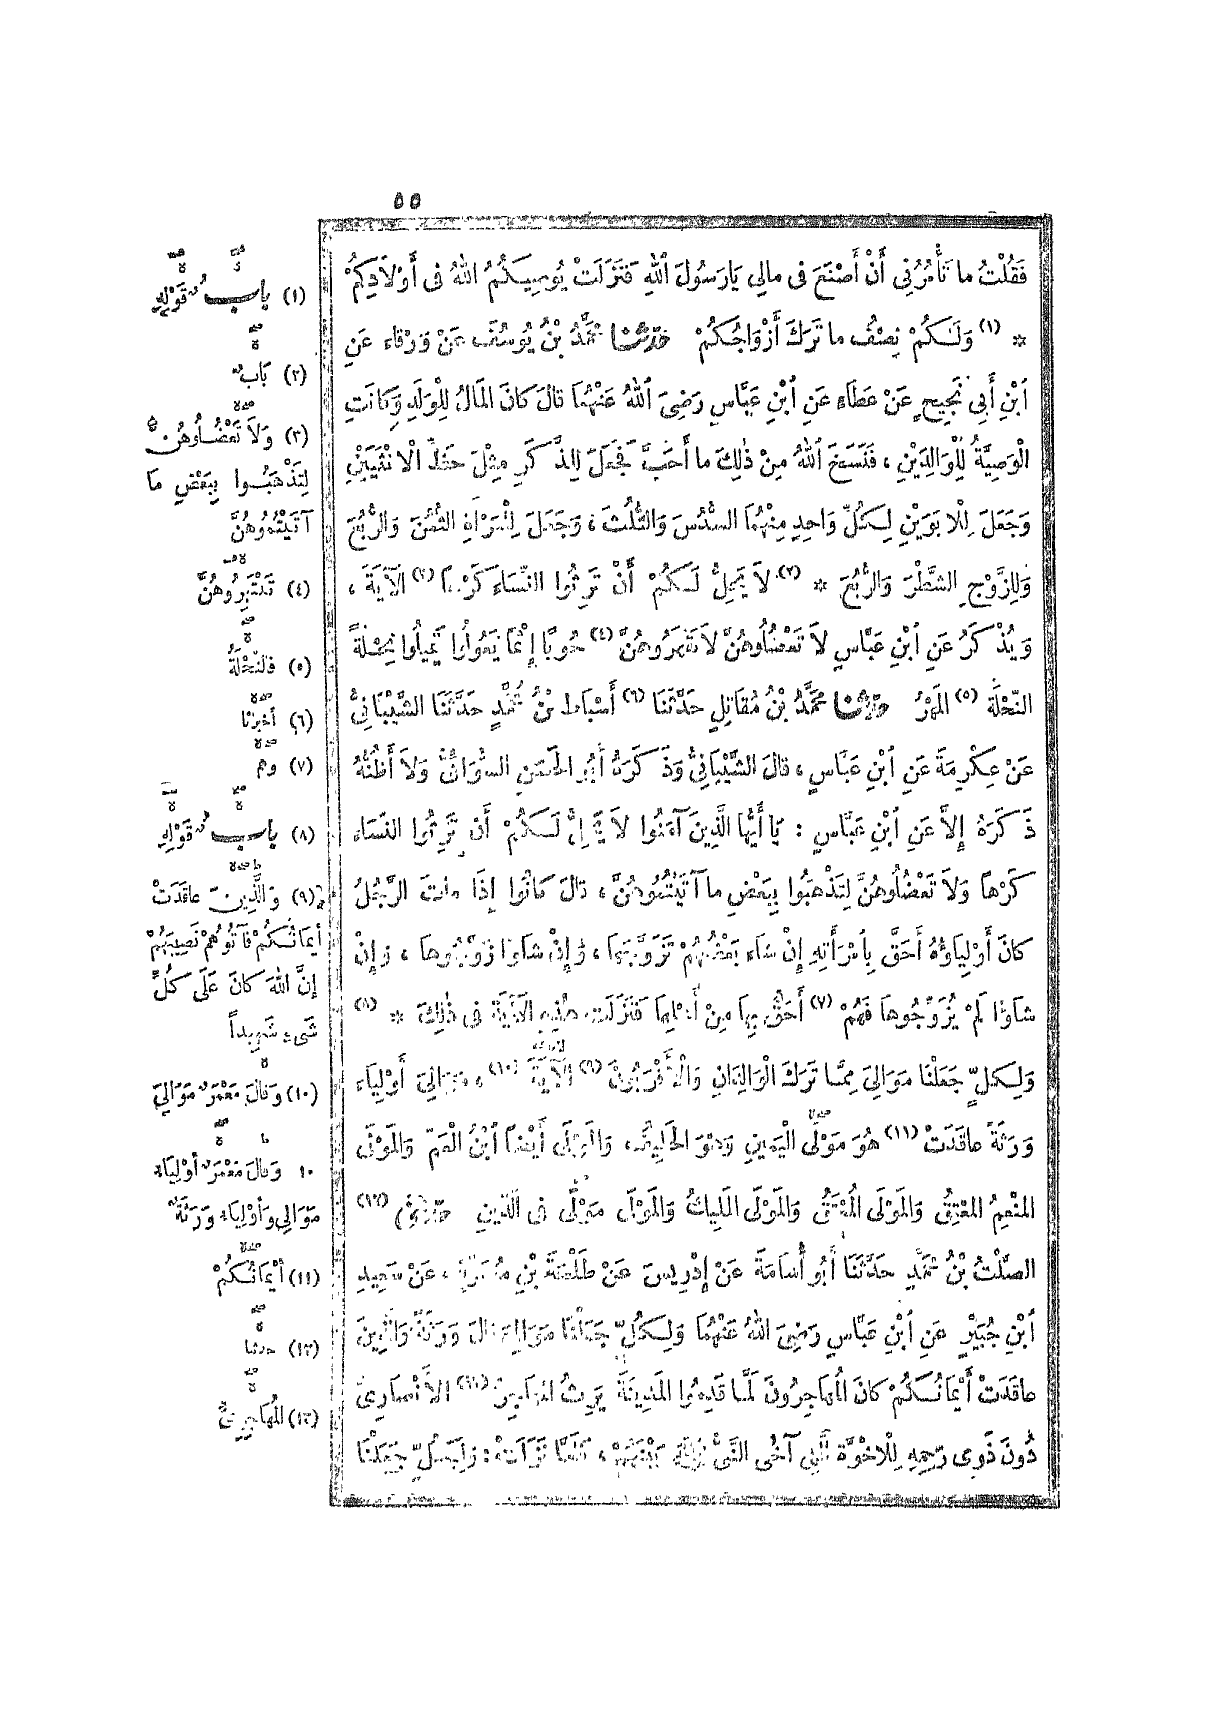 ٥٥
فَقُلْتُ ما تَأْمُرُنِي أَنْ أَصْنَعَ فِى مالِي يَا رَسُولَ ٱللهِ فَنَزَلَتْ يُوصِيكُمُ اللهُ فِى أَوْلَادِكُمْ
* (١) وَلَكُمْ نِصْفُ ما تَرَكَ أَزْوَاجُكُمْ حَدَّثَنا مُحَمَّدُ بْنُ يُوسُفَ عَنْ وَرْقاء عَنِ
ٱبْنِ أَبِي نَجِيحٍ عَنْ عَطَاءٍ عَنِ ٱبْنِ عَبَّاسٍ رَضِيَ ٱللهُ عَنْهُمَا قالَ كانَ المَالُ لِلْوَلَدِ وَكانَتِ
الْوَصِيَّةُ لِلْوَالِدَيْنِ ، فَنَسَخَ ٱللهُ مِنْ ذٰلِكَ ما أَحَبَّ فَجَعَلَ لِلذَّكَرِ مِثْلَ حَظِّ الْأُنْثَيَيْنِ
وَجَعَلَ لِلْأَبَوَيْنِ لِكُلِّ وَاحِدٍ مِنْهُمَا السُّدُسَ وَالثُّلُثَ ، وَجَعَلَ لِلْمَرْأَةِ الثُّمُنَ وَالرُّبُعَ
وَلِلزَّوْجِ الشَّطْرَ وَالرُّبُعَ * (٢) لاَ يَحِلُّ لَكُمْ أَنْ تَرِثُوا النِّسَاءَ كَرْهاً (٣) الآيَةَ ،
وَيُذْكَرُ عَنِ ٱبْنِ عَبَّاسٍ لاَ تَعْضُلُوهُنَّ لاَ تَقْهَرُوهُنَّ (٤) حُوبًا إِثْمًا تَعُولُوا تَمِيلُوا نِحْلَةً
النِّحْلَةُ (٥) المَهْرُ حَدَّثَنا مُحَمَّدُ بْنُ مُقَاتِلٍ حَدَّثَنَا (٦) أَسْبَاطُ بْنُ مُحَمَّدٍ حَدَّثَنَا الشَّيْبَانِيُّ
عَنْ عِكْرِمَةَ عَنِ ٱبْنِ عَبَّاسٍ ، قالَ الشَّيْبَانِيُّ وَذَكَرَهُ أَبُو الحَسَنِ السُّوَائِيُّ وَلاَ أَظُنُّهُ
ذَكَرَهُ إِلاَّ عَنِ ٱبْنِ عَبَّاسٍ : يَا أَيُّهَا الَّذِينَ آمَنُوا لاَ يَحِلُّ لَكُمْ أَنْ تَرِثُوا النِّسَاء
كَرْهاً وَلاَ تَعْضُلُوهُنَّ لِتَذْهَبُوا بِبَعْضِ ما آتَيْتُمُوهُنَّ ، قالَ كانُوا إِذَا ماتَ الرَّجُلُ
كانَ أَوْلِيَاؤُهُ أَحَقَّ بِٱمْرَأَتِهِ إِنْ شَاء بَعْضُهُمْ تَزَوَّجَهَا ، وَإِنْ شَاؤا زَوَّجُوها ، وَإِنْ
شاؤا لَمْ يُزَوِّجُوها فَهُمْ (٧) أَحَقُّ بِهَا مِنْ أَهْلِهَا فَنَزَلَتْ هٰذِهِ الآيَةُ فِى ذٰلِكَ * (٨)
وَلِكُلٍّ جَعَلْنَا مَوَالِيَ مِمَّا تَرَكَ الْوَالِدَانِ وَالْأَقْرَبُونَ (٩) الآيَةَ (١٠) ، مَوَالِيَ أَوْلِيَاء
وَرَثَةً عاقَدَتْ (١١) هُوَ مَوْلَى الْيَمِينِ وَهُوَ الحَلِيفُ ، وَالمَوْلَى أَيْضًا ٱبْنُ الْعَمِّ وَالمَوْلَى
المُنْعِمُ المُعْتِقُ وَالمَوْلَى المُعْتَقُ وَالمَوْلَى المَلِيكُ وَالمَوْلَى مَوْلًى فِى الدِّينِ حَدَّثَنِي (١٢)
الصَّلْتُ بْنُ مُحَمَّدٍ حَدَّثَنَا أَبُو أُسَامَةَ عَنْ إِدْرِيسَ عَنْ طَلْحَةَ بْنِ مُصَرِّفٍ ، عَنْ سَعِيدِ
ٱبْنِ جُبَيْرٍ عَنِ ٱبْنِ عَبَّاسٍ رَضِيَ اللهُ عَنْهُمَا وَلِكُلٍّ جَعَلْنَا مَوَالِيَ قالَ وَرَثَةً وَالَّذِينَ
عاقَدَتْ أَيْمَانُكُمْ كانَ المُهَاجِرُونَ لَمَّا قَدِمُوا المَدِينَةَ يَرِثُ المُهَاجِرُ (١٣) الْأَنْصَارِيَّ
دُونَ ذَوِي رَحِمِهِ لِلْأُخُوَّةِ الَّتِي آخَى النَّبِيُّ ﷺ بَيْنَهُمْ ، فَلَمَّا نَزَلَتْ : وَلِكُلٍّ جَعَلْنَا
(١) بابُ قَوْلِهِ
(٢) بَابٌ
(٣) وَلاَ تَعْضُلُوهُنَّ
لِتَذْهَبُوا بِبَعْضِ ما
آتَيْتُمُوهُنَّ
(٤) تَنْتَهِرُوهُنَّ
(٥) فالنِّحْلَةُ
(٦) أخبرنا
(٧) وهم
(٨) بابُ قَوْلِهِ
(٩) وَالَّذِينَ عاقَدَتْ
أَيمَانُكُمْ فَآتُوهُمْ نَصِيبَهُمْ
إِنَّ اللهَ كانَ عَلَى كُلِّ
شَىْءٍ شَهِيداً
(١٠) وَقَالَ مَعْمَرٌ مَوَالِيَ
١٠ وَقالَ مَعْمَرٌ أَوْلِيَاء
مَوَالِي وَأَوْلِيَاء وَرَثَةٌ
(١١) أَيْمَانُكُمْ
(١٢) حدثنا
(١٣) المُهَاجِرِيُّ